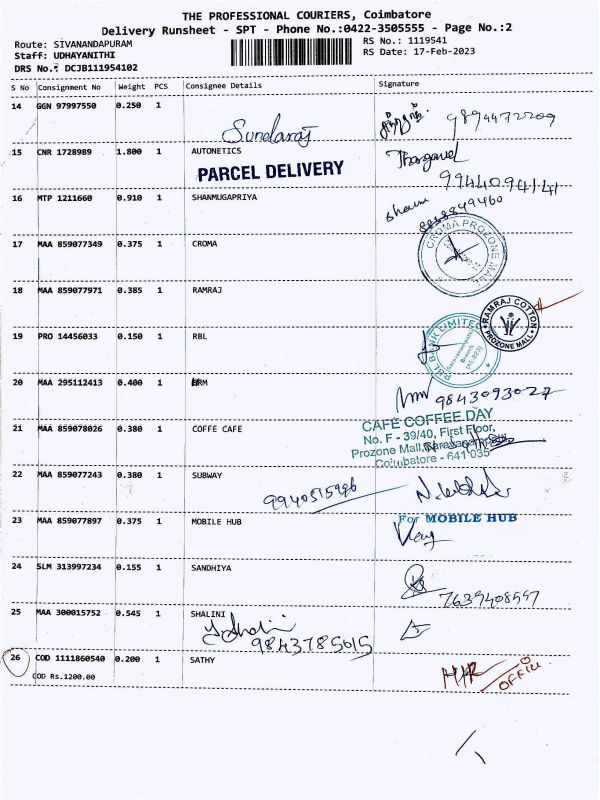 THE PROFESSIONAL COURIERS, Coimbatore
Delivery Runsheet - SPT - Phone No.:0422-3505555 - Page No.:2
Route: SIVANANDAPURAM
Staff: UDHAYANITHI
DRS No.: DCJB111954102
RS No.: 1119541
RS Date: 17-Feb-2023
S No Consignment No Weight PCS Consignee Details Signature
14 GGN 97997550 0.250 1
Sundaraj
15 CNR 1728989 1.800 1 AUTONETICS
PARCEL DELIVERY
9944094141
16 MTP 1211660 0.910 1 SHANMUGAPRIYA
17 MAA 859077349 0.375 1 CROMA
CROMA PROZONE MALL
18 MAA 859077971 0.385 1 RAMRAJ
RAMRAJ COTTON
PROZONE MALL
19 PRO 14456033 0.150 1 RBL
RBL BANK LIMITED
20 MAA 295112413 0.400 1
9843093027
21 MAA 859078026 0.380 1 COFFE CAFE
CAFE COFFEE DAY
No. F - 39/40, First Floor,
Prozone Mall,
Coimbatore - 641 035
22 MAA 859077243 0.380 1 SUBWAY
23 MAA 859077897 0.375 1 MOBILE HUB
For MOBILE HUB
24 SLM 313997234 0.155 1 SANDHIYA
7639408597
25 MAA 300015752 0.545 1 SHALINI
9843785015
26 COD 1111860540 0.200 1 SATHY
COD Rs.1200.00
OFFICE